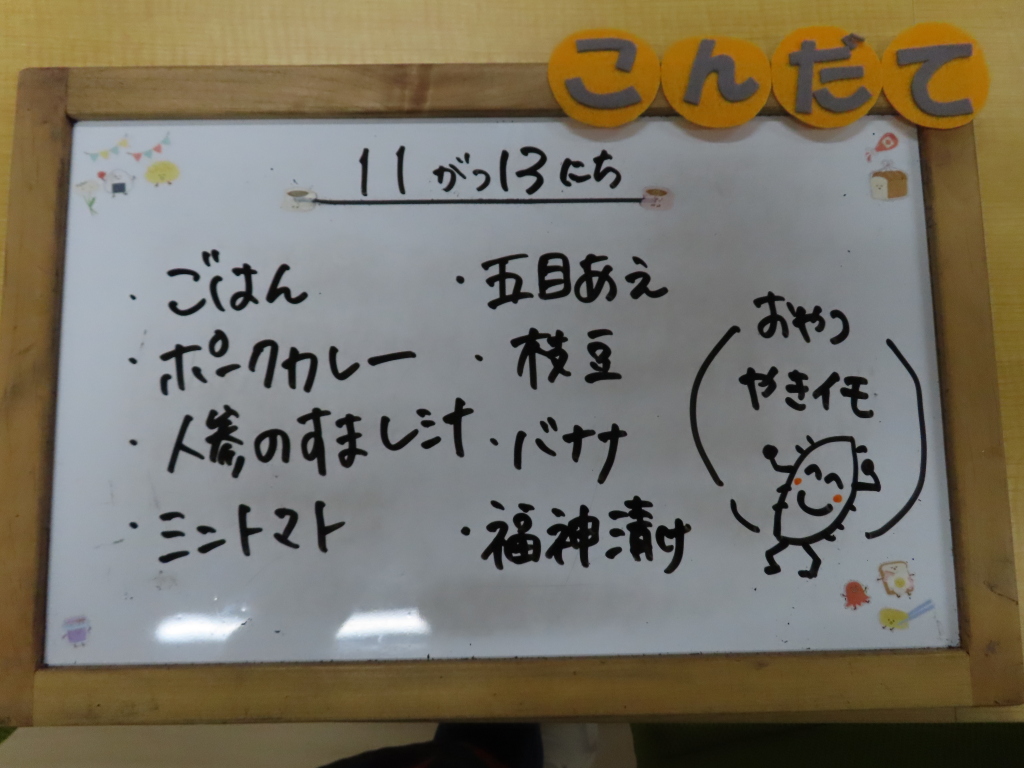 こんだて
11がつ13にち
・ごはん
・ポークカレー
・人参のすまし汁
・ミニトマト
・五目あえ
・枝豆
・バナナ
・福神漬け
おやつ
やきイモ